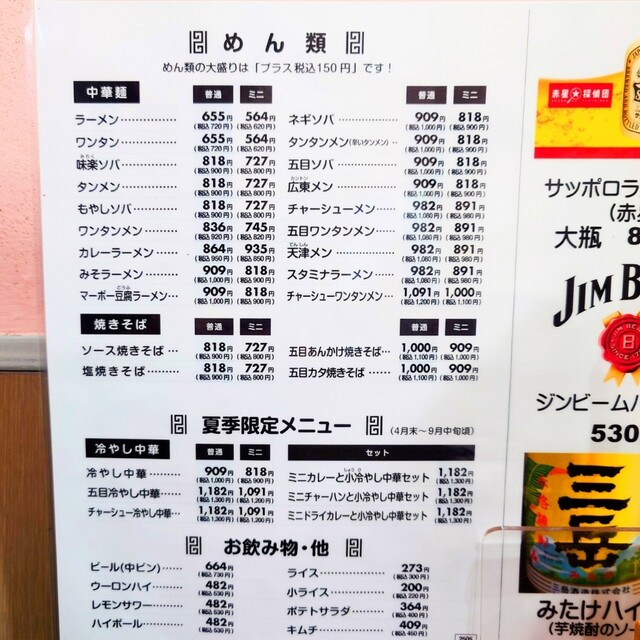 めん類
めん類の大盛りは「プラス税込150円」です！
中華麺 普通 ミニ
ラーメン 655円(税込720円) 564円(税込620円)
ワンタン 655円(税込720円) 564円(税込620円)
味楽ソバ 818円(税込900円) 727円(税込800円)
タンメン 818円(税込900円) 727円(税込800円)
もやしソバ 818円(税込900円) 727円(税込800円)
ワンタンメン 836円(税込920円) 745円(税込820円)
カレーラーメン 864円(税込950円) 935円(税込850円)
みそラーメン 909円(税込1,000円) 818円(税込900円)
マーボー豆腐ラーメン 909円(税込1,000円) 818円(税込900円)
普通 ミニ
ネギソバ 909円(税込1,000円) 818円(税込900円)
タンタンメン(辛いタンメン) 909円(税込1,000円) 818円(税込900円)
五目ソバ 909円(税込1,000円) 818円(税込900円)
広東メン 909円(税込1,000円) 818円(税込900円)
チャーシューメン 982円(税込1,080円) 891円(税込980円)
五目ワンタンメン 982円(税込1,080円) 891円(税込980円)
天津メン 982円(税込1,080円) 891円(税込980円)
スタミナラーメン 982円(税込1,080円) 891円(税込980円)
チャーシューワンタンメン 1,091円(税込1,200円) 1,000円(税込1,100円)
焼きそば 普通 ミニ
ソース焼きそば 818円(税込900円) 727円(税込800円)
塩焼きそば 818円(税込900円) 727円(税込800円)
普通 ミニ
五目あんかけ焼きそば 1,000円(税込1,100円) 909円(税込1,000円)
五目カタ焼きそば 1,000円(税込1,100円) 909円(税込1,000円)
夏季限定メニュー (4月末～9月中旬頃)
冷やし中華 普通 ミニ
冷やし中華 909円(税込1,000円) 818円(税込900円)
五目冷やし中華 1,182円(税込1,300円) 1,091円(税込1,200円)
チャーシュー冷やし中華 1,182円(税込1,300円) 1,091円(税込1,200円)
セット
ミニカレーと小冷やし中華セット 1,182円(税込1,300円)
ミニチャーハンと小冷やし中華セット 1,182円(税込1,300円)
ミニドライカレーと小冷やし中華セット 1,182円(税込1,300円)
お飲み物・他
ビール(中ビン) 664円(税込730円)
ウーロンハイ 482円(税込530円)
レモンサワー 482円(税込530円)
ハイボール 482円(税込530円)
ライス 273円(税込300円)
小ライス 200円(税込220円)
ポテトサラダ 364円(税込400円)
キムチ 409円(税込450円)
赤星★探偵団
サッポロラ
(赤
大瓶 8
JIM B
ジンビームハ
530
三岳
三岳酒造株式会社
みたけハイ
(芋焼酎のソー